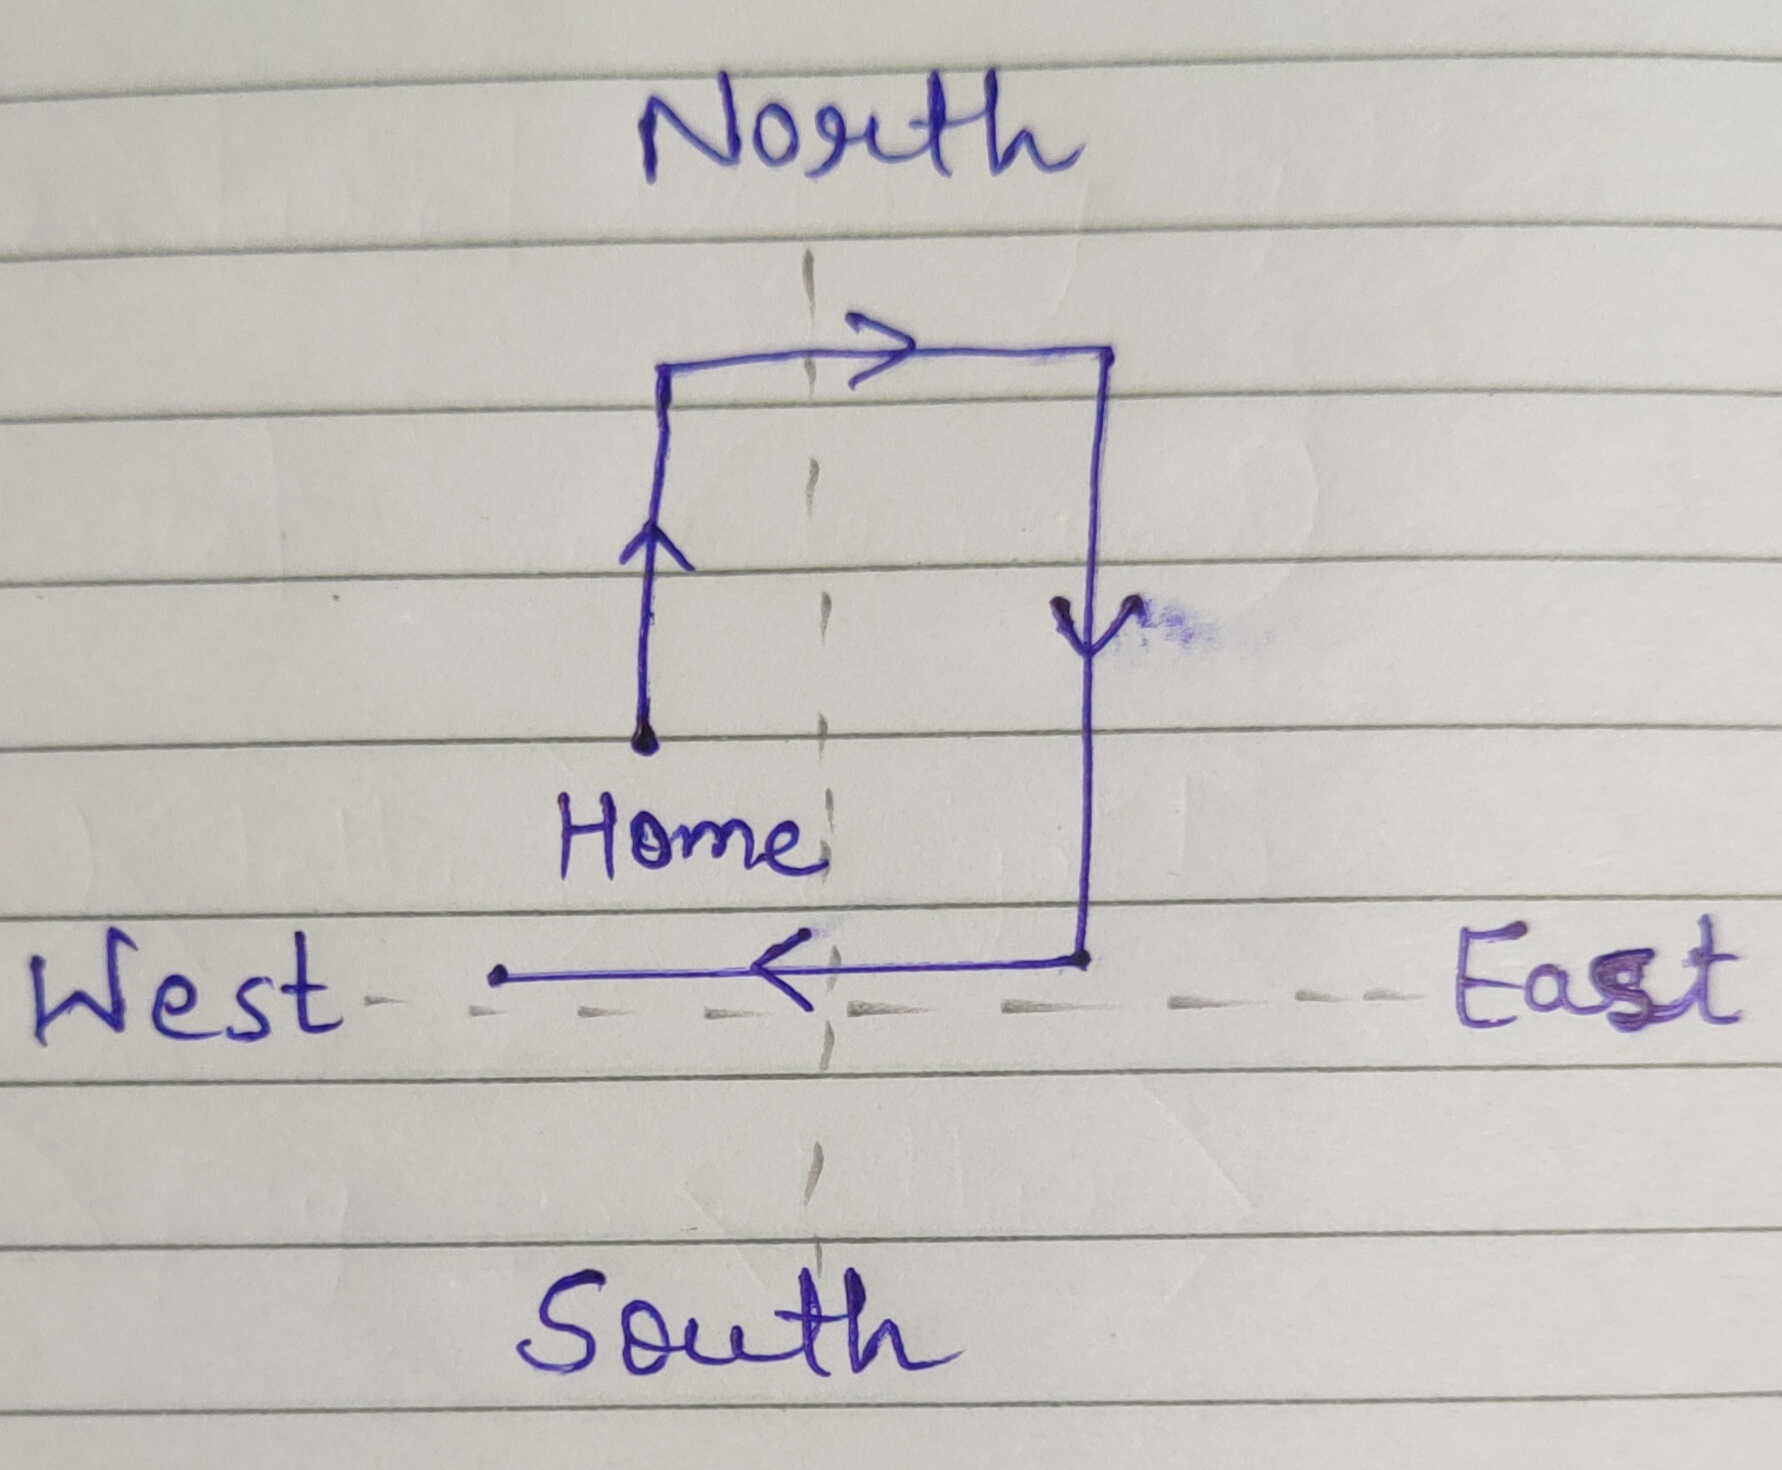 North
Home
West East
South